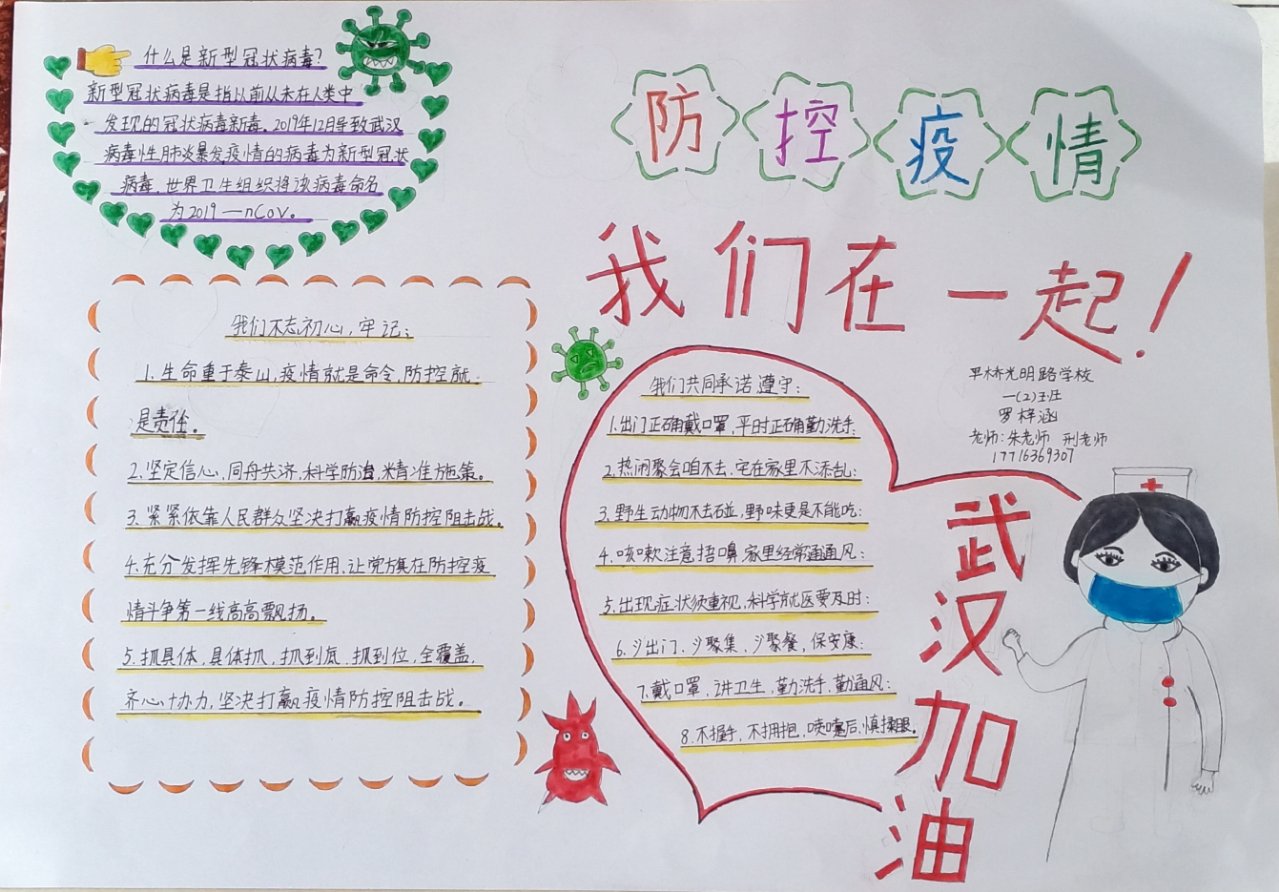 什么是新型冠状病毒?
新型冠状病毒是指以前从未在人类中
发现的冠状病毒新毒。2019年12月导致武汉
病毒性肺炎暴发疫情的病毒为新型冠状
病毒,世界卫生组织将该病毒命名
为2019—nCoV。
防控疫情
我们在一起!
我们不忘初心,牢记:
1.生命重于泰山,疫情就是命令,防控就
是责任。
2.坚定信心,同舟共济,科学防治,精准施策。
3.紧紧依靠人民群众坚决打赢疫情防控阻击战。
4.充分发挥先锋模范作用,让党旗在防控疫
情斗争第一线高高飘扬。
5.抓具体,具体抓,抓到底,抓到位,全覆盖,
齐心协力,坚决打赢疫情防控阻击战。
我们共同承诺遵守:
1.出门正确戴口罩,平时正确勤洗手;
2.热闹聚会咱不去,宅在家里不添乱;
3.野生动物不去碰,野味更是不能吃;
4.咳嗽注意捂嘴鼻,家里经常通通风;
5.出现症状须重视,科学就医要及时;
6.少出门,少聚集,少聚餐,保安康;
7.戴口罩,讲卫生,勤洗手,勤通风;
8.不握手,不拥抱,喷嚏后,慎揉眼。
光明路学校
一(2)班
罗梓涵
老师:朱老师 邢老师
17716369307
武汉加油